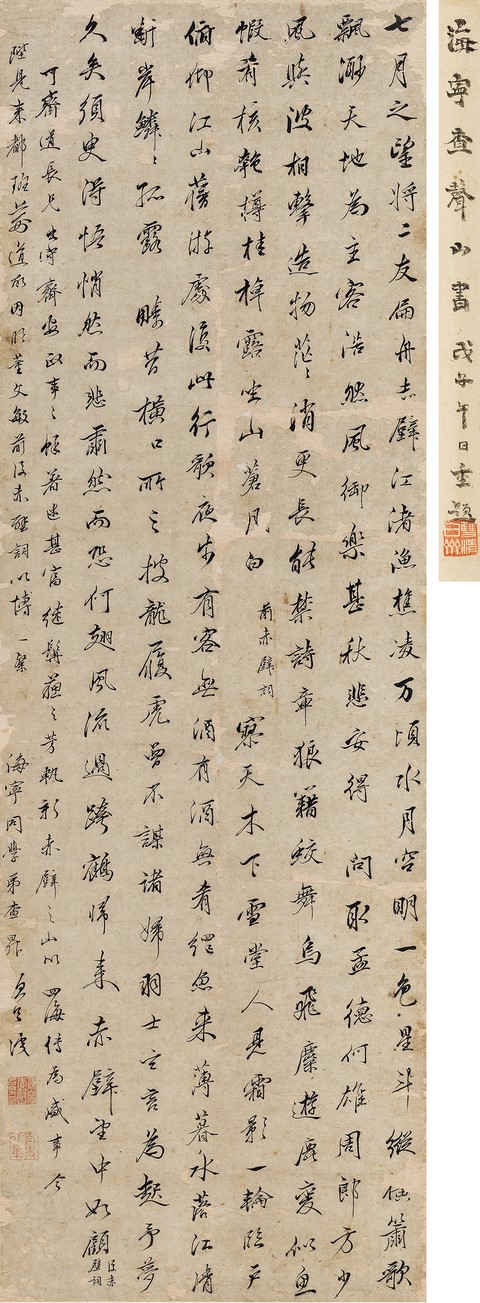 海寧查聲山書 戊子午日重題
七月之望將二友扁舟赤壁江渚漁樵凌万頃水月空明一色星斗縱橫簫歌
飄渺天地為主客浩然風御樂甚秋悲安得 問取孟德何雄周郎方少
風與波相擊造物茫々消更長能禁詩章狼籍蛟舞烏飛麋遊鹿變似魚
蝦肴核匏樽桂棹露坐山蒼月白 前赤壁詞 寥天木下雪堂人見霜影一輪臨戶
俯仰江山舊游處復此行歌夜步有客無酒有酒無肴網魚來薄暮水落江清
斷岸鱗々孤露 疇昔橫口所之披龍履虎曾不謀諸婦羽士玄言為起予夢
久矣須臾得悟悄然而悲肅然而恐何翅風流過跨鶴歸來赤壁望中如顧 后赤壁詞
可齋道長兄出守齊安政事之餘著述甚富継髯蘇之芳軌彰赤壁之山以四海傳為盛事今
陛見來都班荊道故因臨董文敏前後赤壁詞以博一粲 海寧同學弟查昇